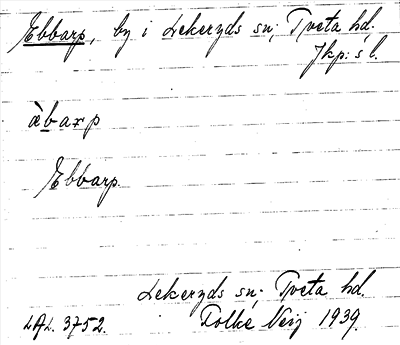 Ebbarp, by i Lekeryds sn; Tveta hd.
Jkp: s l.
àbarp
Ebbarp.
Lekeryds sn; Tveta hd.
LAL. 3752. Folke Neij 1939.